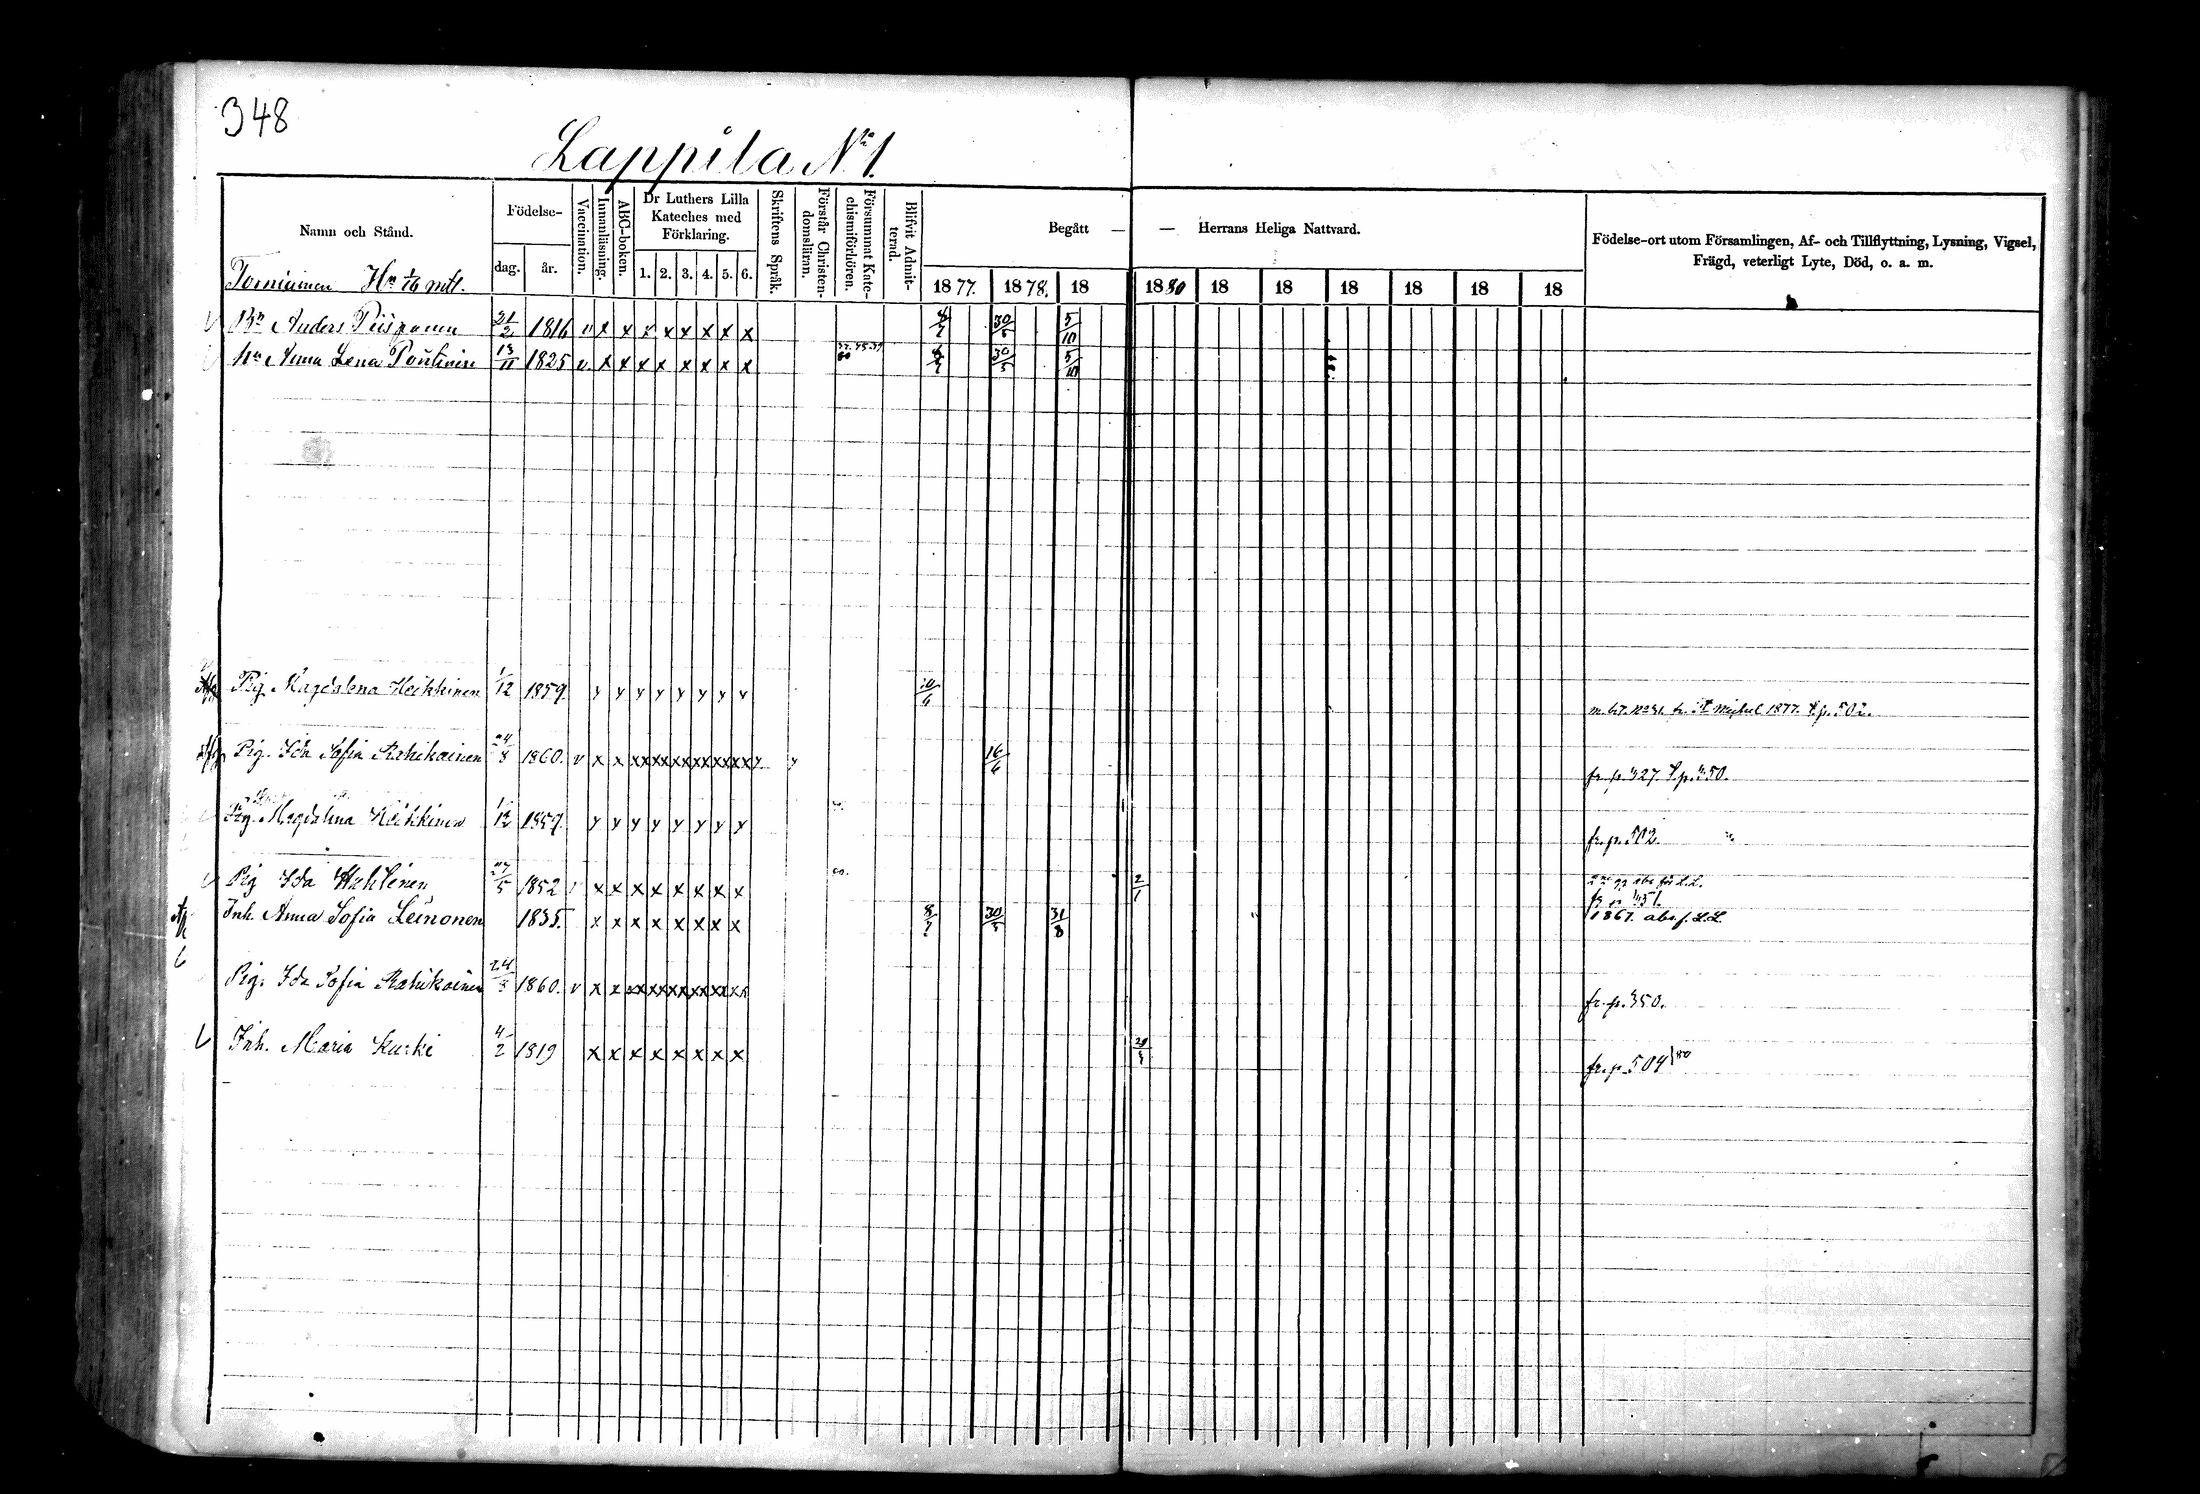 348
Lappila No 1.
Namn och Stånd.
Födelse-
dag.
år.
Vaccination.
Innanläsning.
ABC-boken.
Dr Luthers Lilla Kateches med Förklaring.
1. 2. 3. 4. 5. 6.
Skriftens Språk.
Förstår Christendomsläran.
Försummat Katechismiförhören.
Blifvit Admitterad.
Begått — — Herrans Heliga Nattvard.
1877. 1878. 18 1880 18 18 18 18 18 18
Födelse-ort utom Församlingen, Af- och Tillflyttning, Lysning, Vigsel,
Frägd, veterligt Lyte, Död, o. a. m.
Torniainen Hn 1/6 mtl.
Bn Anders Piispanen 21/2 1816 v x x x x x x x x 8/7 30/5 5/10
hu Anna Lena 13/11 1825 v. x x x x x x x x 8/7 30/5 5/10
Pig. Magdalena Heikkinen 1/12 1859. y y y y y y y y 10/6 fr. St Michel 1877. t. p. 502.
Pig. Ida Sofia 24/8 1860. v x x xx xx xx xx xx xx y y 16/6 fr. p. 327. t. p. 350.
Pig. Magdalena Heikkinen 1/12 1859. y y y y y y y y fr. p. 502.
Pig Ida 27/5 1852 x x x x x x x x 2/1
Inh. Anna Sofia Leinonen 1835. x x x x x x x x 8/7 30/5 31/8 1867. abs. f. L.L.
Pig. Ida Sofia 24/8 1860. v x x xx xx xx xx xx xx fr. p. 350.
Inh. Maria Kurki 4/2 1819 x x x x x x x x fr. p. 504